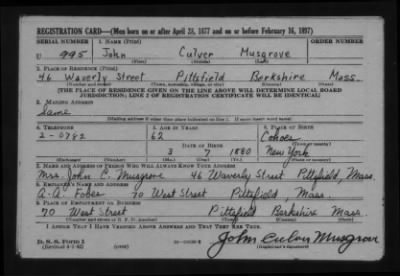 REGISTRATION CARD—(Men born on or after April 28, 1877 and on or before February 16, 1897)
SERIAL NUMBER 1. NAME (Print) ORDER NUMBER
U 995 John Culver Musgrove
(First) (Middle) (Last)
2. PLACE OF RESIDENCE (Print)
46 Waverly Street Pittsfield Berkshire Mass.
(Number and street) (Town, township, village, or city) (County) (State)
[THE PLACE OF RESIDENCE GIVEN ON THE LINE ABOVE WILL DETERMINE LOCAL BOARD
JURISDICTION; LINE 2 OF REGISTRATION CERTIFICATE WILL BE IDENTICAL]
3. MAILING ADDRESS
Same
(Mailing address if other than place indicated on line 2. If same insert word same)
4. TELEPHONE 5. AGE IN YEARS 6. PLACE OF BIRTH
2-0782 62 Cohoes
DATE OF BIRTH (Town or county)
3 7 1880 New York
(Exchange) (Number) (Mo.) (Day) (Yr.) (State or country)
7. NAME AND ADDRESS OF PERSON WHO WILL ALWAYS KNOW YOUR ADDRESS
Mrs. John C. Musgrove 46 Waverly Street Pittsfield, Mass.
8. EMPLOYER'S NAME AND ADDRESS
A. A. Fobes 70 West Street Pittsfield, Mass.
9. PLACE OF EMPLOYMENT OR BUSINESS
70 West Street Pittsfield Berkshire Mass.
(Number and street or R. F. D. number) (Town) (County) (State)
I AFFIRM THAT I HAVE VERIFIED ABOVE ANSWERS AND THAT THEY ARE TRUE.
D. S. S. Form 1
John Culver Musgrove